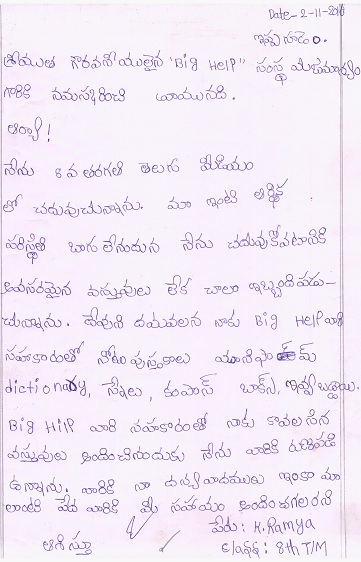 Date- 2-11-2016
ఇస్నపురం.
శ్రీయుత గౌరవనీయులైన "Big HELP" సంస్థ యజమాన్యం
గారికి నమస్కరించి వ్రాయునది.
ఆర్యా!
నేను 8 వ తరగతి తెలుగు మీడియం
లో చదువుచున్నాను. మా ఇంటి ఆర్థిక
పరిస్థితి బాగు లేనందున నేను చదువుకోవటానికి
అవసరమైన వస్తువులు లేక చాలా ఇబ్బంది పడు-
చున్నాను. దేవుని దయవలన నాకు Big Help వారి
సహకారంతో నోటు పుస్తకాలు యూనిఫామ్
dictionary, స్కేలు, కంపాస్ బాక్స్, ఇవ్వబడ్డాయి.
Big HilP వారి సహకారంతో నాకు కావలసిన
వస్తువులు అందించినందుకు నేను వారికి రుణపడి
ఉన్నాను. వారికి నా ధన్యవాదములు ఇంకా మా
లాంటి పేద వారికి మీ సహాయం అందించగలరని
ఆశిస్తూ
పేరు: K. Ramya
class: 8th T/M